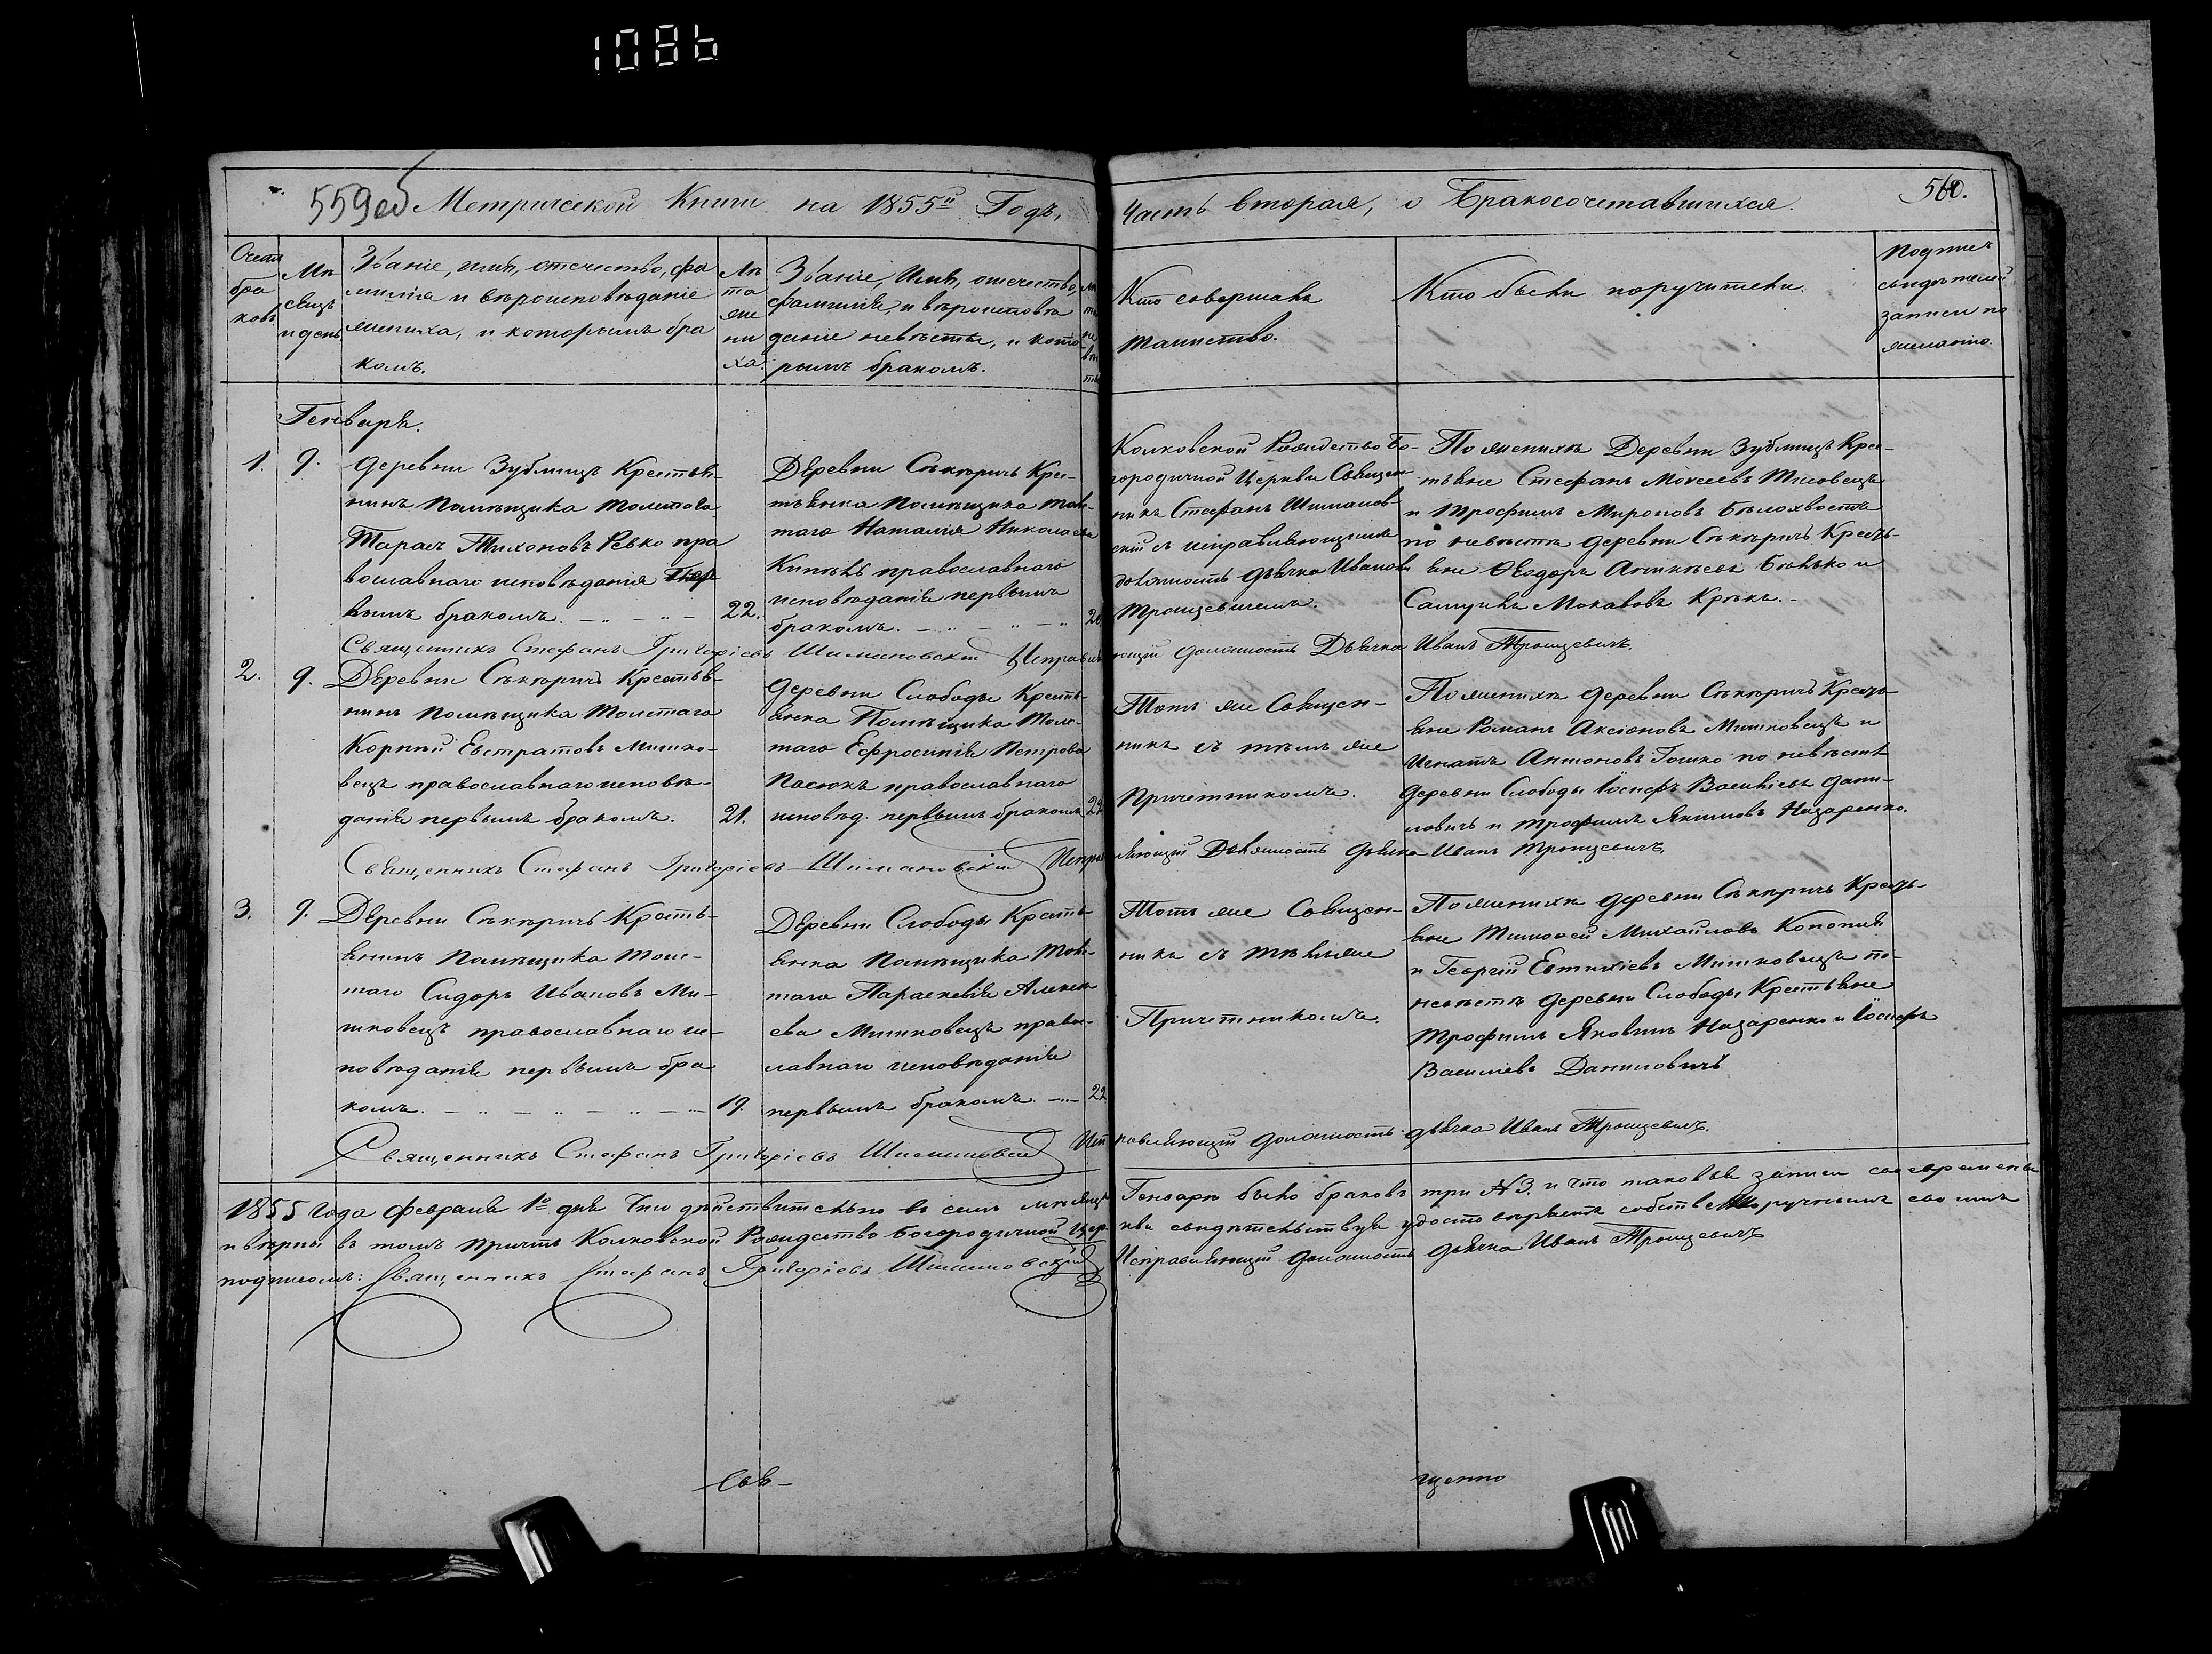 1086
559об Метрической Книги на 1855й Годъ,
Часть вторая, о Бракосочетавшихся.
560.
Счетъ
бра
ковъ
Мѣ
сяцъ
и день
Званіе, имя, отечество, фа
милія и вѣроисповѣданіе
жениха, и которымъ бра
комъ.
Лѣ
та
же
ни
ха.
Званіе, Имя, отечество,
фамилія, и вѣроисповѣ
даніе невѣсты, и кото-
рымъ бракомъ.
Кто совершалъ
таинство.
Кто были поручители.
Подпис
свидѣтелей
записи по
желанію.
Генваря.
1.
9.
деревни Зублищъ Крестья-
нинъ Помѣщика Толстого
Тарасъ Тихоновъ Ревко пра
вославнаго исповѣданія пер
вымъ бракомъ.
22.
Деревни Сѣкѣричъ Крес-
тьянка Помѣщика Толс-
таго Наталія Николаева
православнаго
исповѣданія первымъ
бракомъ.
20
Колковской Рождество Бо-
городичной Церкви Священ-
никъ Стефанъ Шиманов-
скій съ исправляющимъ
должность дьячка Иваномъ
Троцевичемъ.
По женихѣ Деревни Зублищъ Крес-
тьяне Стефанъ Моисеевъ
и Трофимъ Мироновъ Бѣлохвостъ
по невѣстѣ деревни Сѣкѣричъ Кресть-
яне Ѳеодоръ и
Самуилъ
Священникъ Стефанъ Григоріевъ Шимановскій Исправля
ющій должность Дьячка Иванъ Троцевичъ.
2.
9.
Деревни Сѣкѣричъ Крестья-
нинъ Помѣщика Толстаго
Корній Евстратовъ Мишко-
вецъ православнаго исповѣ-
данія первымъ бракомъ.
21.
деревни Слободы Кресть-
янка Помѣщика Толс-
таго Ефросинія Петрова
Пасюкъ православнаго
исповѣд. первымъ бракомъ
22
Тотъ же Священ-
никъ съ тѣмъ же
Причетникомъ.
По женихѣ деревни Сѣкѣричъ Кресть-
яне Романъ Аксіоновъ Мишковецъ и
Игнатъ Антоновъ по невѣстѣ
деревни Слободы Іосифъ Василіевъ Дани-
ловичъ и Трофимъ Якимовъ Назаренко.
Священникъ Стефанъ Григоріевъ Шимановскій Исправ
ляющій Должность дьячка Иванъ Троцевичъ.
3.
9.
Деревни Сѣкѣричъ Кресть-
янинъ Помѣщика Толс-
таго Сидоръ Ивановъ Ми-
шковецъ православнаго ис-
повѣданія первымъ бра
комъ.
19.
Деревни Слободы Кресть-
янка Помѣщика Толс-
таго Параскевія Алексѣ
ева Мишковецъ правос-
лавнаго исповѣданія
первымъ бракомъ.
22
Тотъ же Священ-
никъ съ тѣмъже
Причетникомъ.
По женихѣ деревни Сѣкѣричъ Кресть-
яне Тимоѳей Михайловъ
и Георгій Евтихіевъ Мишковецъ по
невѣстѣ деревни Слободы Крестьяне
Трофимъ Якимовъ Назаренко и Іосифъ
Василіевъ Даниловичъ
Священникъ Стефанъ Григоріевъ Шимановскій Исп
равляющій должность дьячка Иванъ Троцевичъ.
1855 года февраля 1го дня Что дѣйствительно въ семъ мѣсяцѣ Генварѣ было браковъ три №3. и что таковыя записи своевременны
и вѣрны въ томъ Причтъ Колковской Рождество Богородичной Цер-кви свидѣтельствуя удостовѣряетъ собственноручнымъ своимъ
подписомъ: Священникъ Стефанъ Григоріевъ Шимановскій Исправляющій должность дьячка Иванъ Троцевичъ
Свя-
щенно